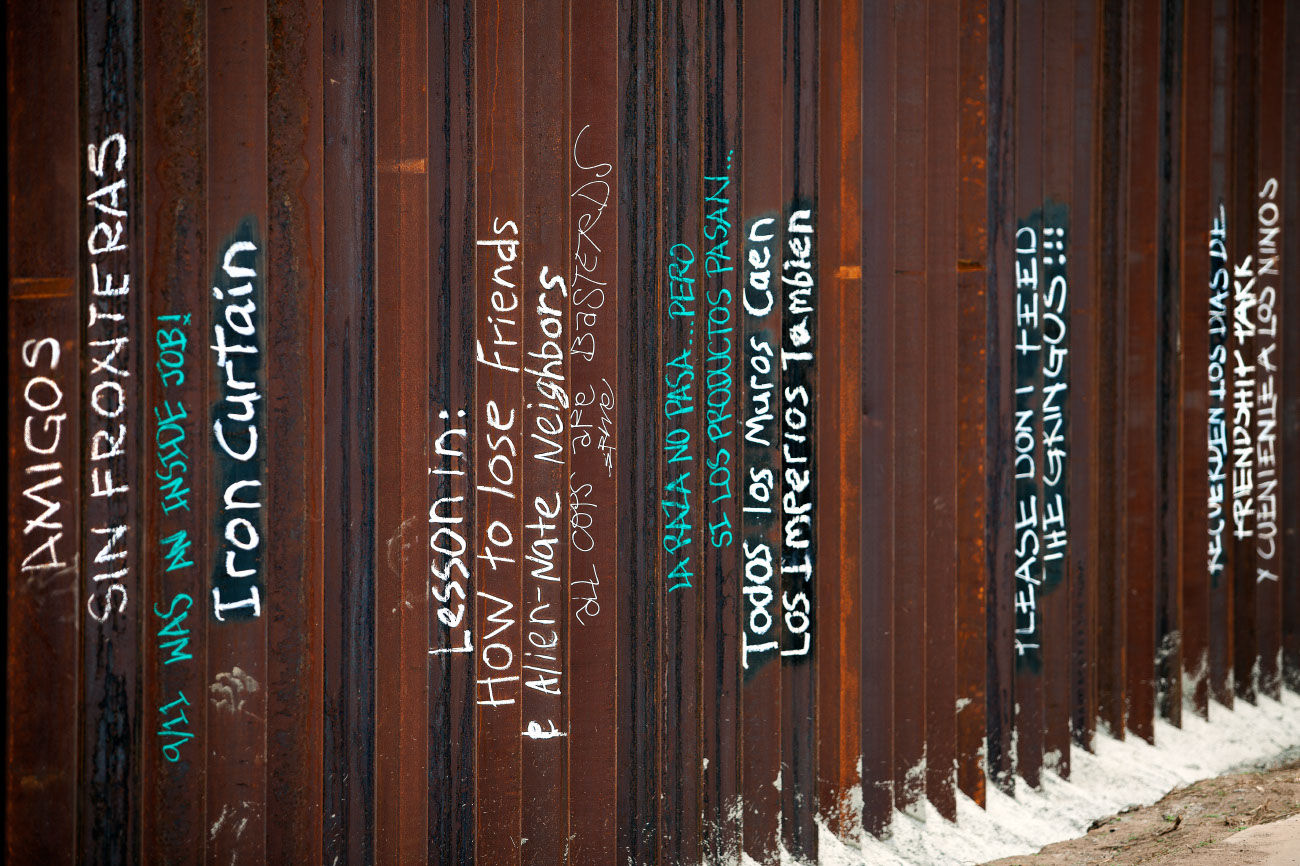 AMIGOS
SIN FRONTERAS
9/11 WAS AN INSIDE JOB!
Iron Curtain
Lesson in:
How to lose Friends
& Alien-Nate Neighbors
all cops are BaSTERDS
LA RAZA NO PASA...PERO
SI LOS PRODUCTOS PASAN...
Todos los Muros Caen
Los Imperios Tambien
PLEASE DON'T FEED
THE GRINGUS!!!
RECUERDEN LOS DIAS DE
FRIENDSHIP PARK
Y CUENTENLE A LOS NIÑOS